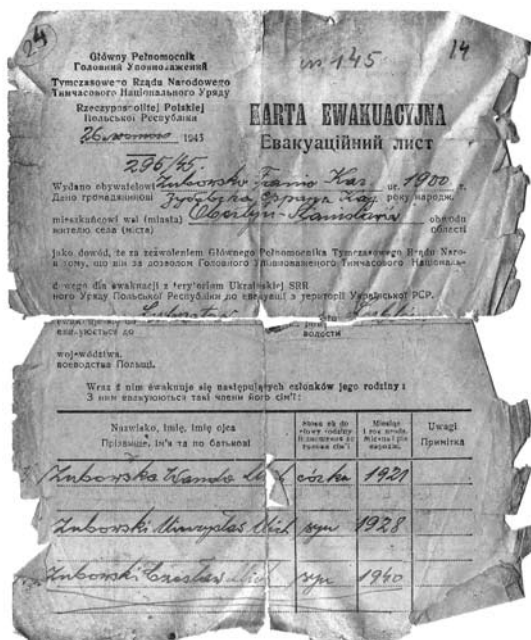 24
nr 145
14
Główny Pełnomocnik
Головний Уповноважений
Tymczasowego Rządu Narodowego
Тимчасового Національного Уряду
Rzeczypospolitej Polskiej
Польської Республіки
26 1945
295/45.
KARTA EWAKUACYJNA
Евакуаційний лист
Wydano obywatelowi Zuborska Kaz ur. 1900 r.
Дано громадянинові року народж.
mieszkańcowi wsi (miasta) Obertyn-Stanisława obwodu
жителю села (міста) області
jako dowód, że za zezwoleniem Głównego Pełnomocnika Tymczasowego Rządu Naro-
в тому, що він за дозволом Головного Уповноваженого Тимчасового Національ-
d wego dla ewakuacji z terytorium Ukraińskiej SRR
ного Уряду Польської Республіки до евакуації з території Української РСР.
ewakuuje się do
евакуюється до волости
województwa.
воеводства Польщі.
Wraz z nim ewakuuje się następujących członków jego rodziny:
З ним евакуюються такі члени його сім'ї:
Nazwisko, imię, imię ojca
Прізвище, ім'я та по батькові
Uwagi
Примітка
Zuborska Wanda Mich córka 1921
Zuborski Mich syn 1928
Zuborski Czesław Mich syn 1940